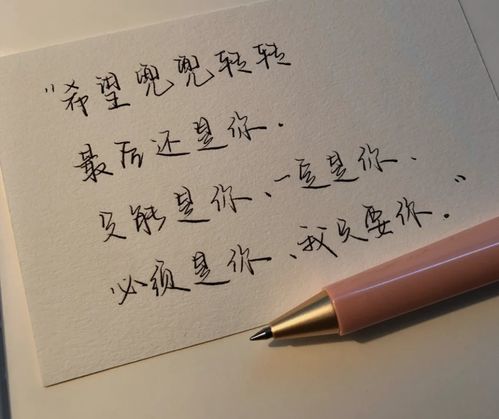 "希望兜兜转转
最后还是你.
只能是你、一定是你.
必须是你、我只要你."